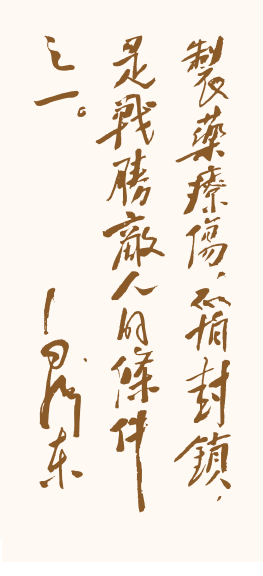 製藥療傷，不怕封鎖，
是戰勝敵人的條件
之一。
毛澤東